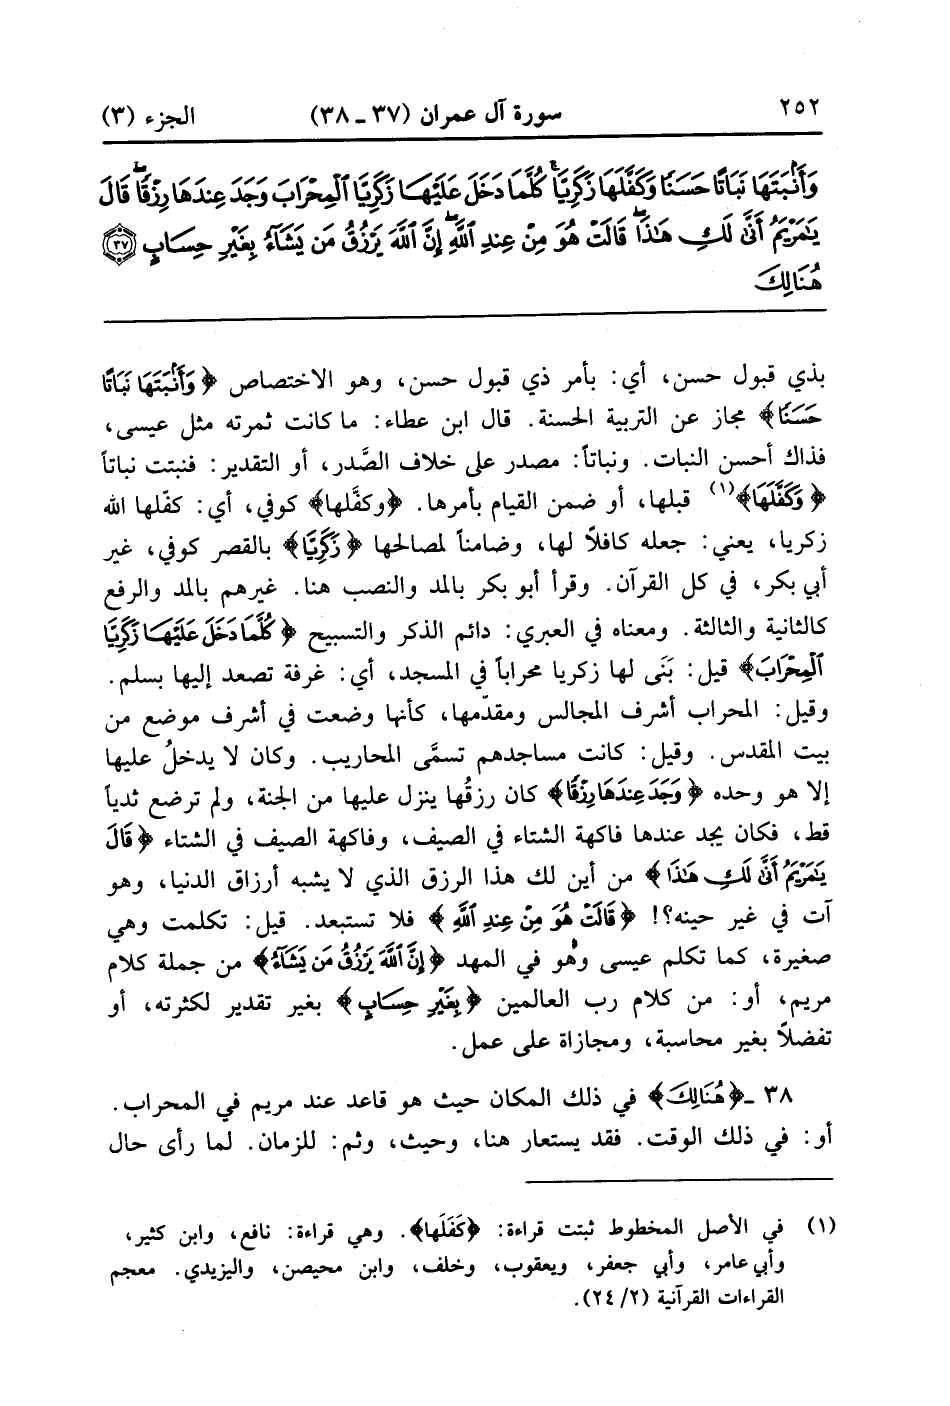 ٢٥٢ سورة آل عمران (٣٧ ـ ٣٨) الجزء (٣)
وَأَنۢبَتَهَا نَبَاتًا حَسَنٗا وَكَفَّلَهَا زَكَرِيَّاۖ كُلَّمَا دَخَلَ عَلَيۡهَا زَكَرِيَّا ٱلۡمِحۡرَابَ وَجَدَ عِندَهَا رِزۡقٗاۖ قَالَ
يَٰمَرۡيَمُ أَنَّىٰ لَكِ هَٰذَاۖ قَالَتۡ هُوَ مِنۡ عِندِ ٱللَّهِۖ إِنَّ ٱللَّهَ يَرۡزُقُ مَن يَشَآءُ بِغَيۡرِ حِسَابٍ ٣٧
هُنَالِكَ
بذي قبول حسن، أي: بأمر ذي قبول حسن، وهو الاختصاص ﴿وَأَنۢبَتَهَا نَبَاتًا
حَسَنٗا﴾ مجاز عن التربية الحسنة. قال ابن عطاء: ما كانت ثمرته مثل عيسى،
فذاك أحسن النبات. ونباتاً: مصدر على خلاف الصَّدر، أو التقدير: فنبتت نباتاً
﴿وَكَفَّلَهَا﴾(١) قبلها، أو ضمن القيام بأمرها. ﴿وكفَّلها﴾ كوفي، أي: كفّلها الله
زكريا، يعني: جعله كافلاً لها، وضامناً لمصالحها ﴿زَكَرِيَّا﴾ بالقصر كوفي، غير
أبي بكر، في كل القرآن. وقرأ أبو بكر بالمد والنصب هنا. غيرهم بالمد والرفع
كالثانية والثالثة. ومعناه في العبري: دائم الذكر والتسبيح ﴿كُلَّمَا دَخَلَ عَلَيۡهَا زَكَرِيَّا
ٱلۡمِحۡرَابَ﴾ قيل: بَنَى لها زكريا محراباً في المسجد، أي: غرفة تصعد إليها بسلم.
وقيل: المحراب أشرف المجالس ومقدّمها، كأنها وضعت في أشرف موضع من
بيت المقدس. وقيل: كانت مساجدهم تسمَّى المحاريب. وكان لا يدخلُ عليها
إلا هو وحده ﴿وَجَدَ عِندَهَا رِزۡقٗا﴾ كان رزقُها ينزل عليها من الجنة، ولم ترضع ثدياً
قط، فكان يجد عندها فاكهة الشتاء في الصيف، وفاكهة الصيف في الشتاء ﴿قَالَ
يَٰمَرۡيَمُ أَنَّىٰ لَكِ هَٰذَا﴾ من أين لك هذا الرزق الذي لا يشبه أرزاق الدنيا، وهو
آت في غير حينه؟! ﴿قَالَتۡ هُوَ مِنۡ عِندِ ٱللَّهِ﴾ فلا تستبعد. قيل: تكلمت وهي
صغيرة، كما تكلم عيسى وهُو في المهد ﴿إِنَّ ٱللَّهَ يَرۡزُقُ مَن يَشَآءُ﴾ من جملة كلام
مريم، أو: من كلام رب العالمين ﴿بِغَيۡرِ حِسَابٍ﴾ بغير تقدير لكثرته، أو
تفضلاً بغير محاسبة، ومجازاة على عمل.
٣٨ ـ ﴿هُنَالِكَ﴾ في ذلك المكان حيث هو قاعد عند مريم في المحراب.
أو: في ذلك الوقت. فقد يستعار هنا، وحيث، وثم: للزمان. لما رأى حال
(١) في الأصل المخطوط ثبتت قراءة: ﴿كَفَلَها﴾. وهي قراءة: نافع، وابن كثير،
وأبي عامر، وأبي جعفر، ويعقوب، وخلف، وابن محيصن، واليزيدي. معجم
القراءات القرآنية (٢/ ٢٤).